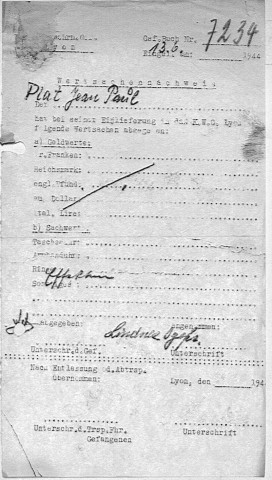 Gef.Buch Nr. 7234
13.6. 1944
Wertsachennachweis
Plat Jean Paul
hat bei seiner Einlieferung in das K.W.G. Lyon
folgende Wertsachen abgegeben:
a) Geldwerte:
Fr.Franken:
Reichsmark:
engl.Pfund:
Dollar:
ital. Lire:
b) Sachwerte
Effekten
abgegeben: angenommen:
Lindner
Unterschr.d.Gef. Unterschrift
Nach Entlassung od.Abtrsp.
Übernommen: Lyon, den 194
Unterschr.d.Trsp.Fhr. Unterschrift
Gefangenen